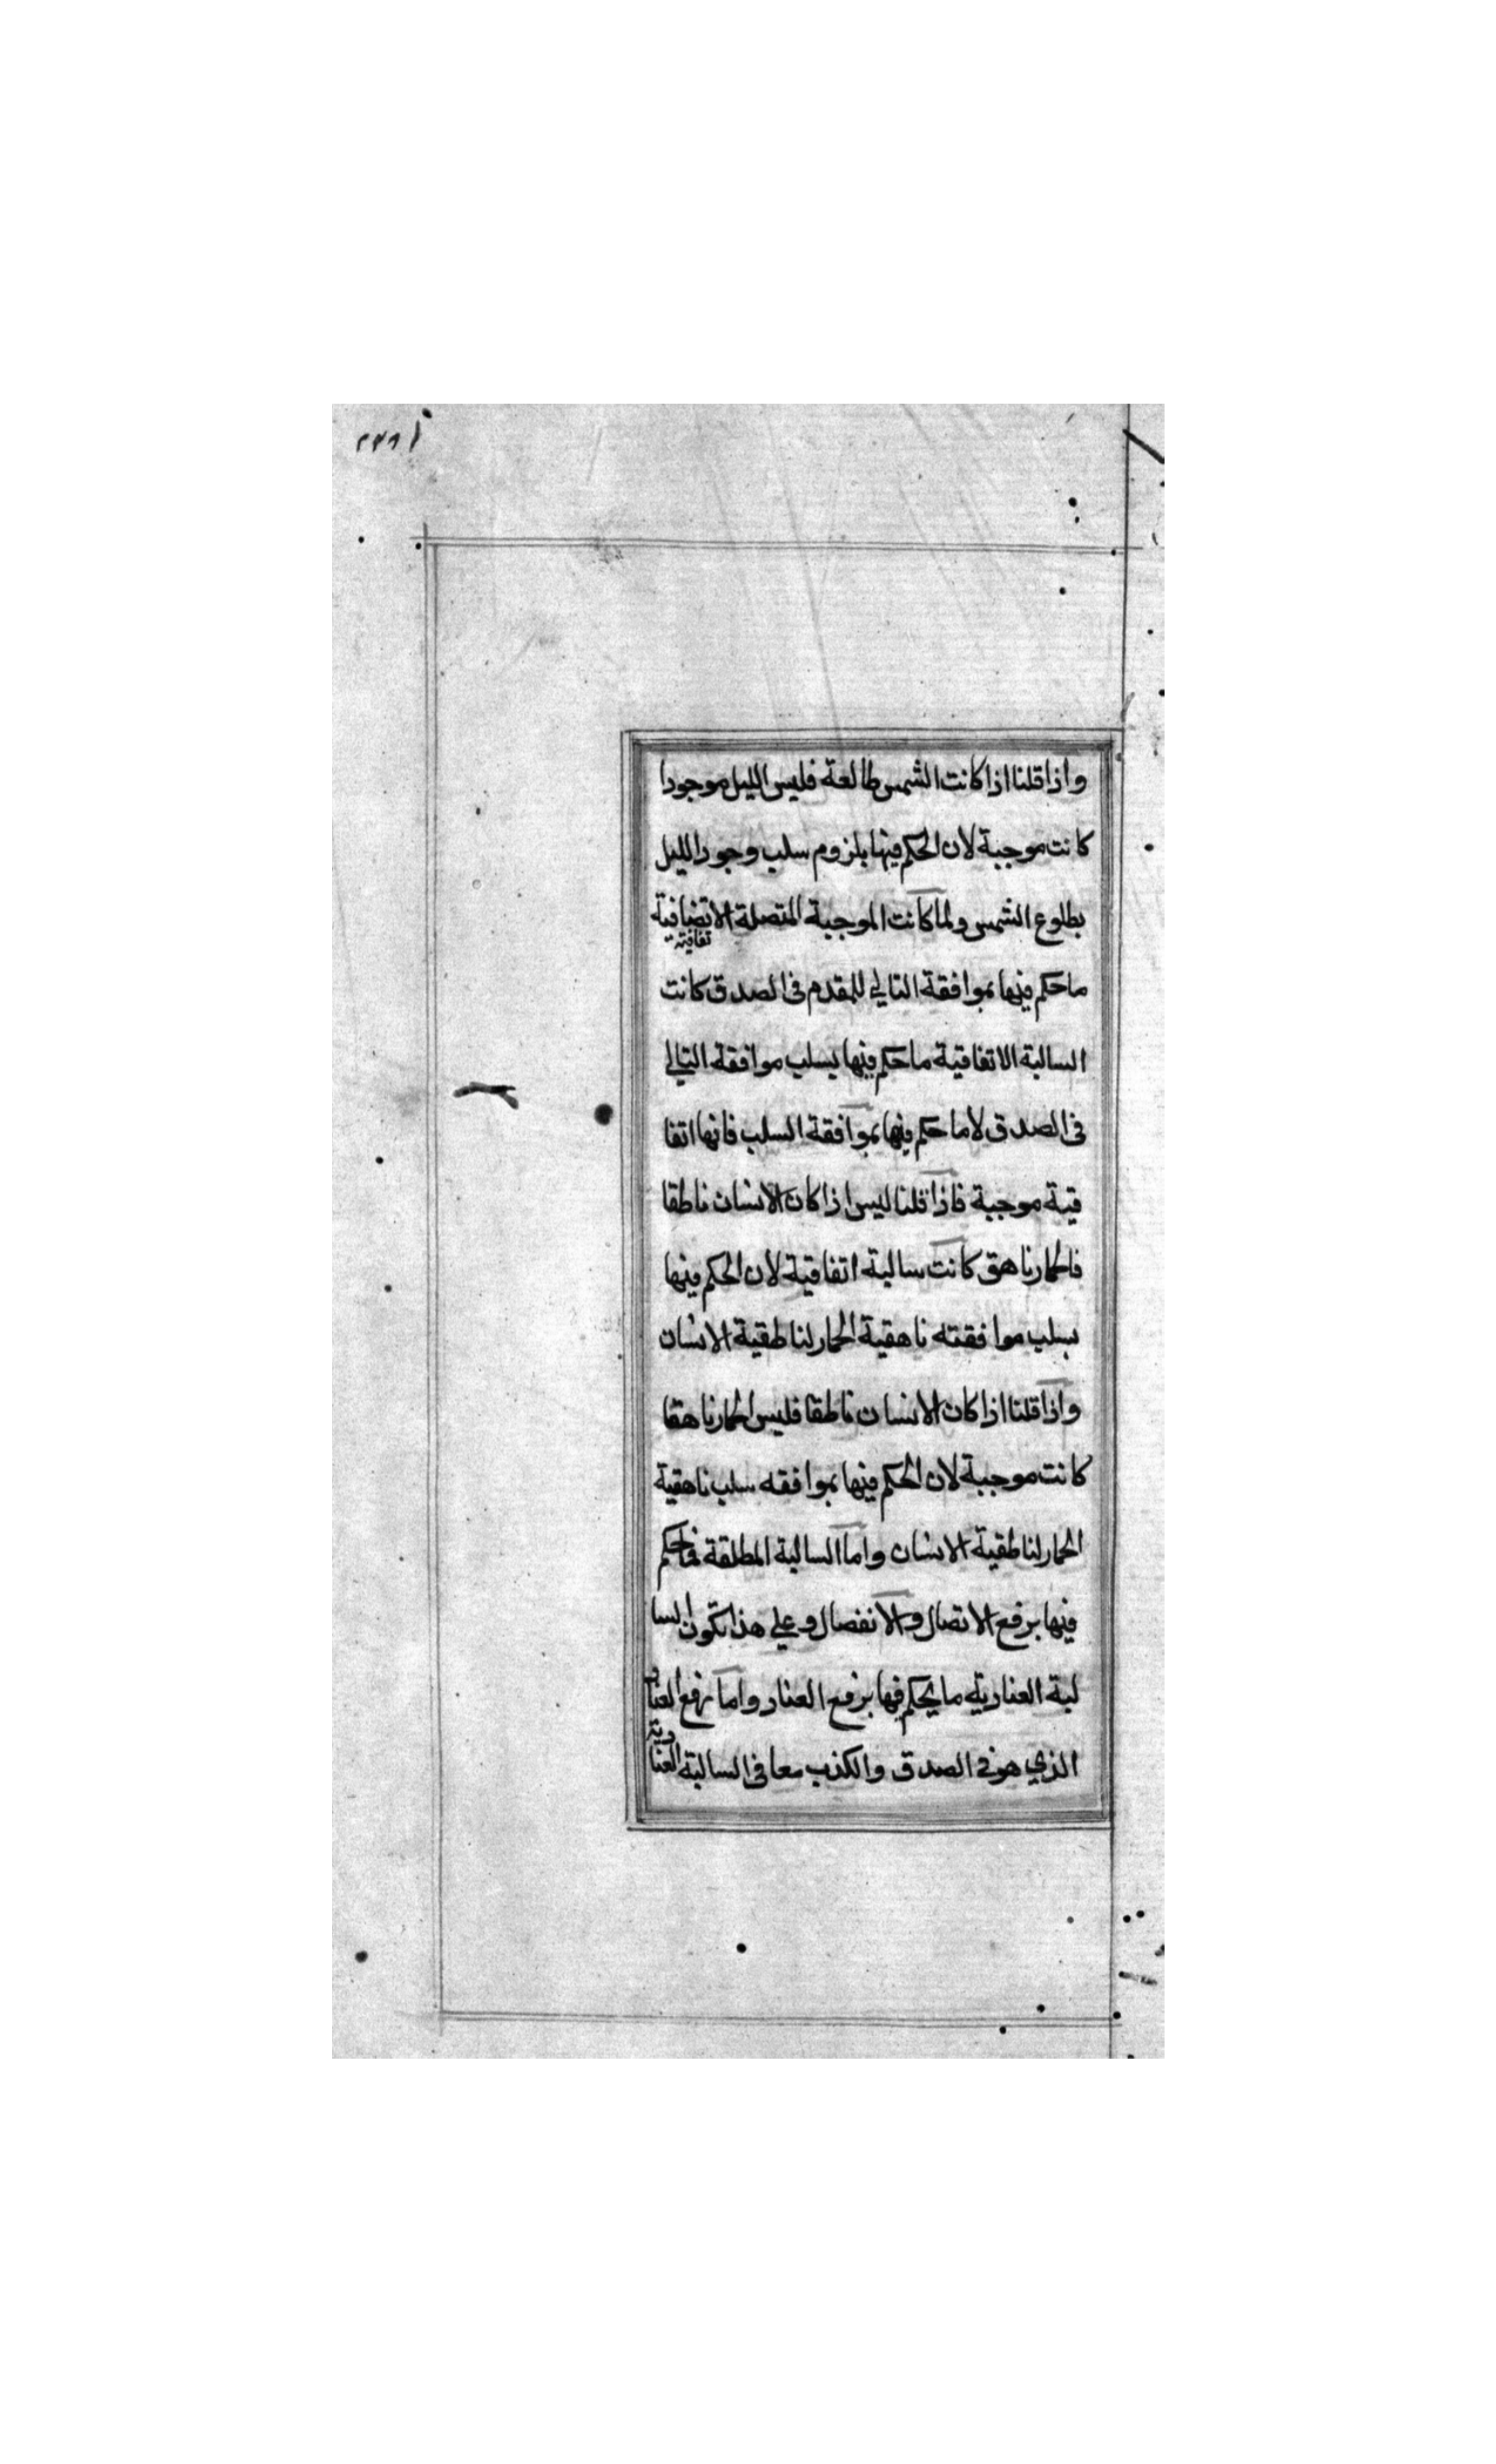 واذا قلنا اذا كانت الشمس طالعة فليس الليل موجودا
كانت موجبة لان الحكم فيها بلزوم سلب وجود الليل
بطلوع الشمس ولما كانت الموجبة المتصلة الاتضافية
تفاقية
ما حكم فيها بموافقة التالي للمقدم فى الصدق كانت
السالبة الاتفاقية ما حكم فيها بسلب موافقة التالي
فى الصدق لا ما حكم فيها بموافقة السلب فانها اتفا
قية موجبة فاذا قلنا ليس اذا كان الانسان ناطقا
فالحمار ناهق كانت سالبة اتفاقية لان الحكم فيها
بسلب موافقته ناهقية الحمار لناطقية الانسان
واذا قلنا اذا كان الانسان ناطقا فليس الحمار ناهقا
كانت موجبة لان الحكم فيها بموافقه سلب ناهقية
الحمار لناطقية الانسان واما السالبة المطلقة فما حكم
فيها برفع الاتصال والانفصال وعلى هذا تكون السا
لبة العنادية ما يحكم فيها برفع العناد واما رفع العناد
الذي هو فى الصدق والكذب معا فى السالبة العنا
دية